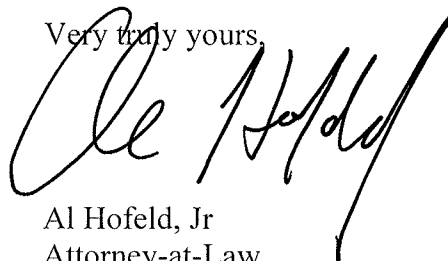 Very truly yours,
Al Hofeld
Al Hofeld, Jr
Attorney-at-Law